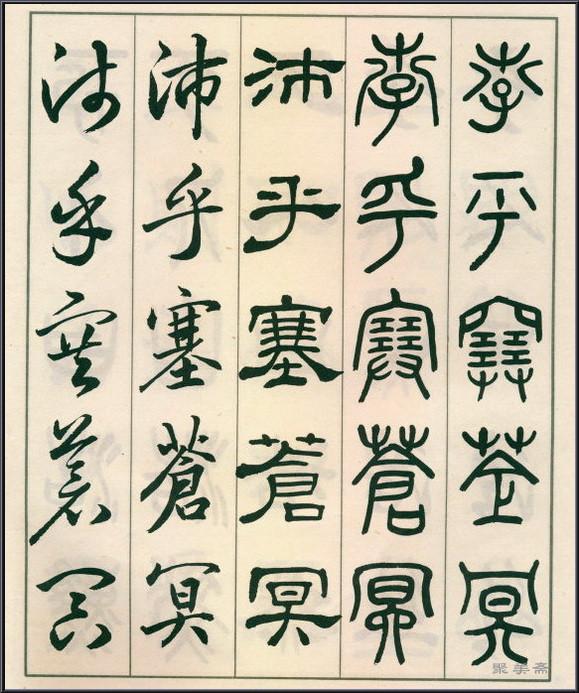 孛乎塞蒼冥
孛乎塞蒼冥
沛乎塞蒼冥
沛乎塞蒼冥
沛乎塞蒼冥